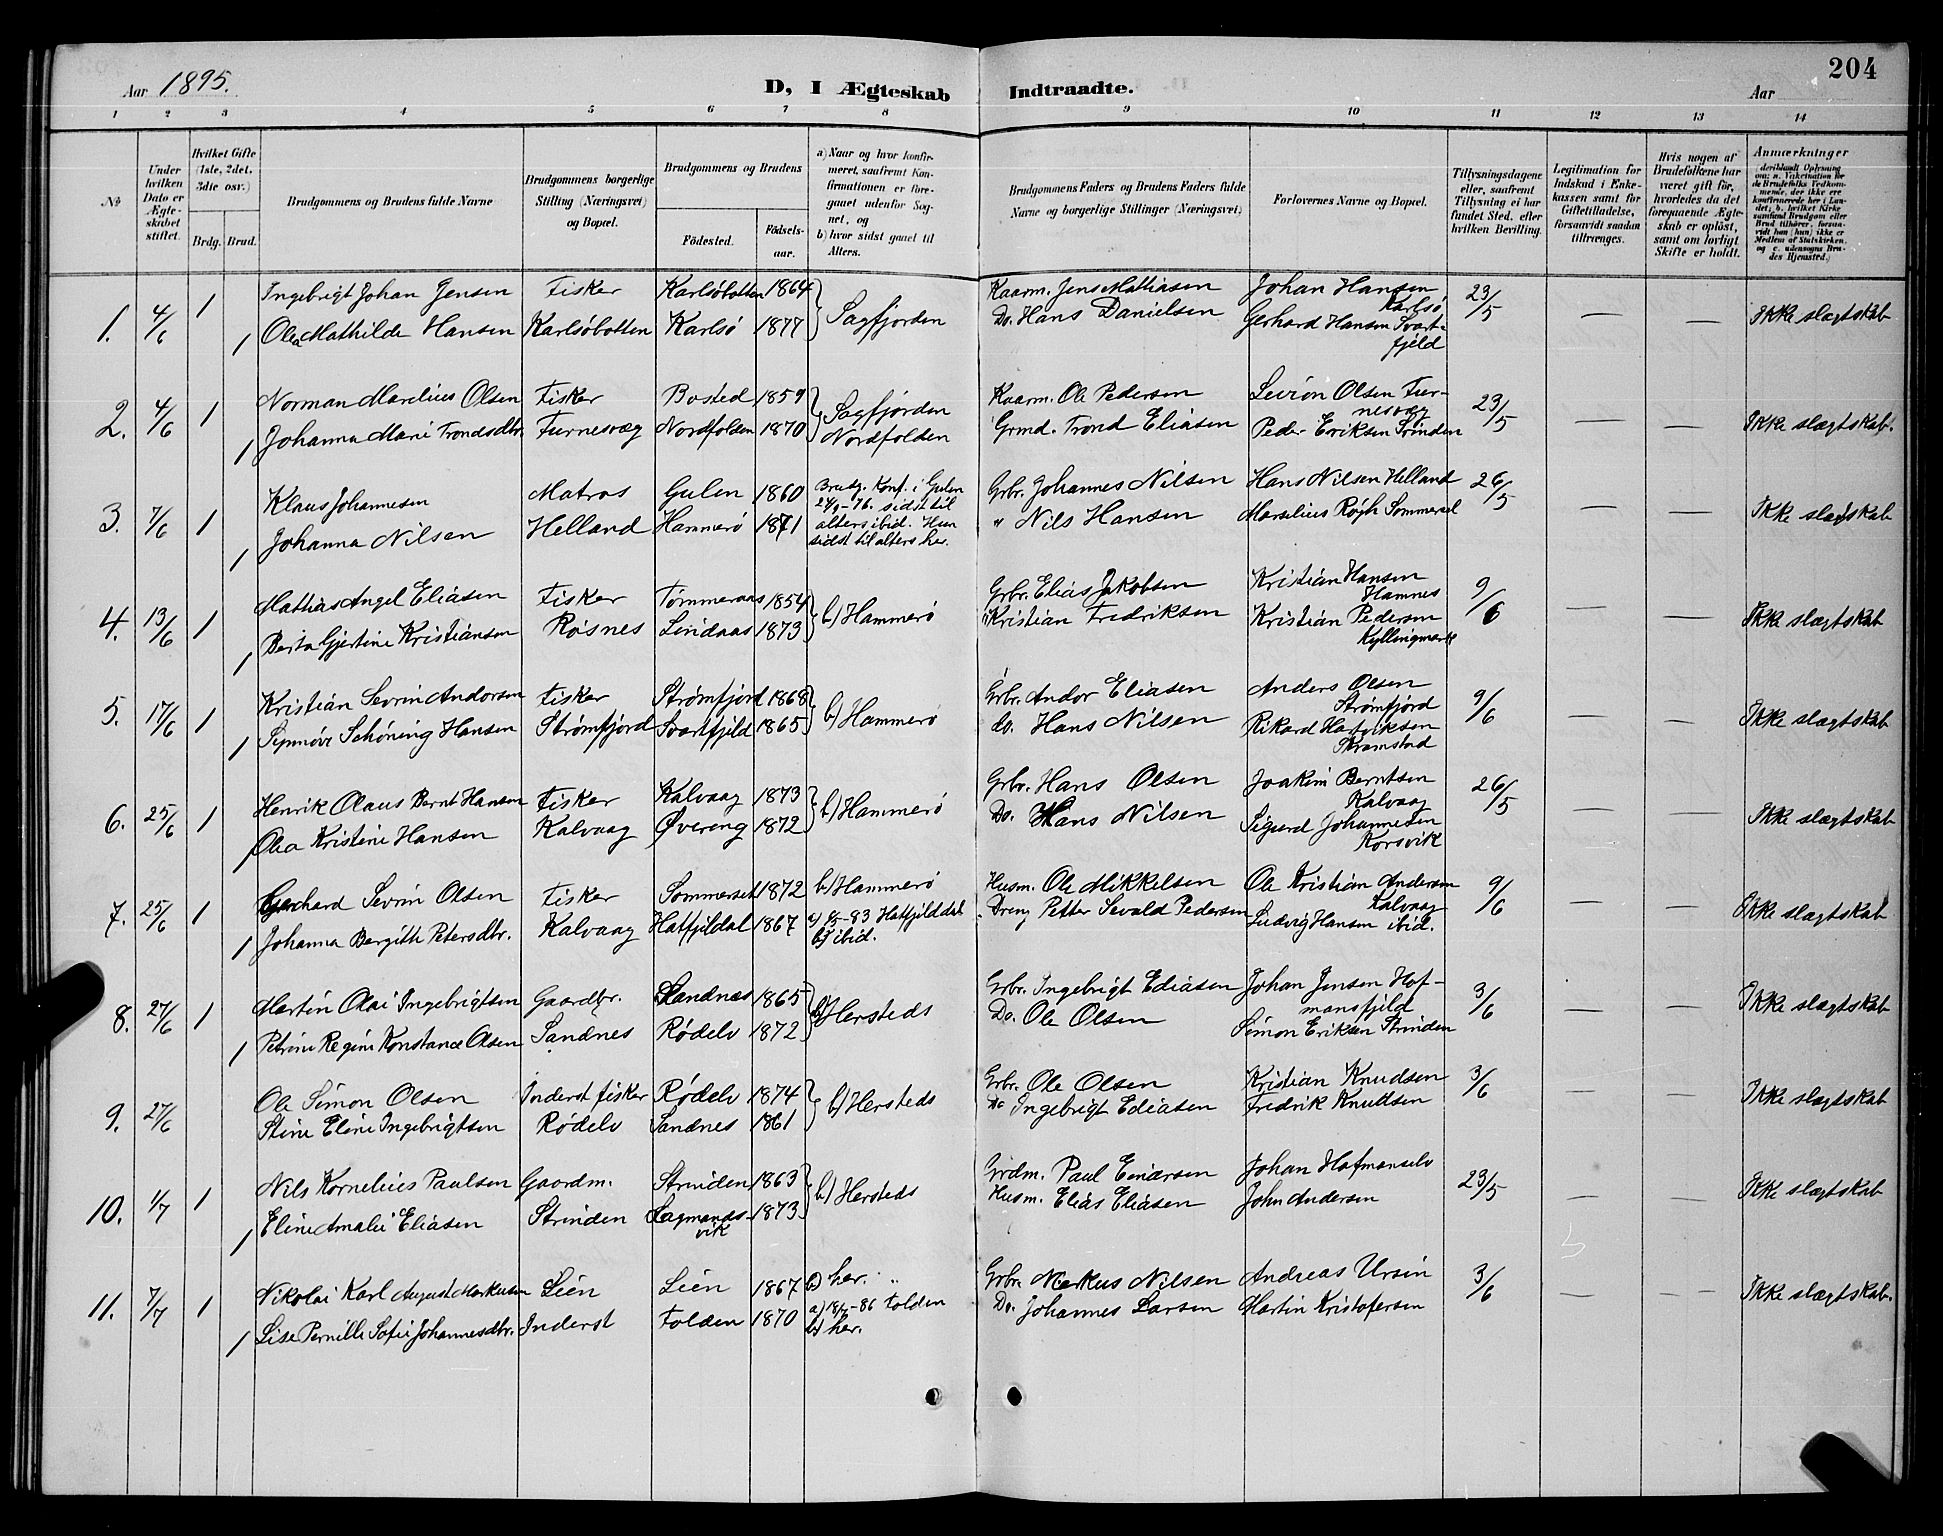 204
Aar 1895.
D, I Ægteskab Indtraadte.
Aar
1 2 3 4 5 6 7 8 9 10 11 12 13 14
№
Under hvilken Dato er Ægteskabet stiftet.
Hvilket Gifte (1ste, 2det, 3die osv.)
Brdg. Brud.
Brudgommens og Brudens fulde Navne
Brudgommens borgerlige Stilling (Næringsvei) og Bopæl.
Brudgommens og Brudens
Födested.
Födselsaar.
a) Naar og hvor konfirmeret, saafremt Konfirmationen er foregaaet udenfor Sognet, og
b) hvor sidst gaaet til Alters.
Brudgommens Faders og Brudens Faders fulde Navne og borgerlige Stillinger (Næringsvei)
Forlovernes Navne og Bopæl.
Tillysningsdagene eller, saafremt Tillysning ei har fundet Sted, efter hvilken Bevilling.
Legitimation for Indskud i Enkekassen samt for Giftetilladelse, forsaavidt saadan tiltrænges.
Hvis nogen af Brudefolkene har været gift før, hvorledes da det foregaaende Ægteskab er opløst, samt om lovligt Skifte er holdt.
Anmærkninger
1. 4/6 1 Ingebrigt Johan Jensen Fisker Karlsöbotten 1864 Sagfjorden Kaarm. Jens Mathiasen Johan Hansen Karlsö 23/5 — — Ikke slægtskab
1 Olea Mathilde Hansen Karlsöbotten Karlsö 1877 Do. Hans Danielsen Gerhard Hansen Svartfjeld
2. 4/6 1 Norman Marelius Olsen Fisker Bosted 1859 Sagfjorden Kaarm. Ole Pedersen Sevrin Olsen Furnesvæg 23/5 — — Ikke slægtskab.
1 Johanna Marie Trondsdtr. Furnesvæg Nordfolden 1870 Nordfolden Grmd. Trond Eliasen Peder Eriksen Srinden
3. 7/6 1 Klaus Johannesen Matros Gulen 1860 Brudg. Konf. i Gulen 24/9-76. sidst til alters ibid. Hun sidst til alters her. Grbr. Johannes Nilsen Hans Nilsen Helland 26/5 — — Ikke slægtskab
1 Johanna Nilsen Helland Hammerö 1871 " Nils Hansen Marselius Rögh Sommersel
4. 13/6 1 Mathias Angel Eliasen Fisker Tømmeraas 1854 b) Hammerö Grbr. Elias Jakobsen Kristian Hansen Hamnes 9/6 — — Ikke slægtskab
1 Berta Gjertine Kristiansen Røsnes Lindaas 1873 " Kristian Fredriksen Kristian Pedersen Kyllingmark
5. 17/6 1 Kristian Sevrin Andorsen Fisker Strømfjord 1868 b) Hammerö Grbr. Andor Eliasen Anders Olsen Strømfjord 9/6 — — Ikke slægtskab
1 Synnöve Schöning Hansen Strømfjord Svartfjeld 1865 do. Hans Nilsen Rikard Hartviksen Skramstad
6. 25/6 1 Henrik Olaus Bernt Hansen Fisker Kalvaag 1873 b) Hammerö Grbr. Hans Olsen Joakim Berntsen Kalvaag 26/5 — — Ikke slægtskab
1 Olea Kristine Hansen Kalvaag Övereng 1872 Do. Hans Nilsen Sigurd Johannesen Korsvik
7. 25/6 1 Gerhard Sevrin Olsen Fisker Sommerset 1872 b) Hammerö Husm. Ole Mikkelsen Ole Kristian Andersen Kalvaag 9/6 — — Ikke slægtskab
1 Johanna Bergitte Petersdtr. Kalvaag Hatfjeldal 1867 -83 Hatfjelddal b) ibid. Dreng Petter Sevald Pedersen Ludvig Hansen ibid.
8. 27/6 1 Martin Olai Ingebrigtsen Gaardbr. Sandnes 1865 b) Hersteds Grbr. Ingebrigt Ediasen Johan Jensen Hofmansfjeld 3/6 — — Ikke slægtskab
1 Petrine Regine Konstance Olsen Sandnes Rödelv 1872 Do. Ole Olsen Simon Eriksen Strinden
9. 27/6 1 Ole Simon Olsen Inderst fisker Rödelv 1874 b) Hersteds Grbr. Ole Olsen Kristian Knudsen 3/6 — — Ikke slægtskab
1 Stine Eline Ingebrigtsen Rödelv Sandnes 1861 Do Ingebrigt Ediasen Fredrik Knudsen
10. 1/7 1 Nils Kornelius Paulsen Gaardm. Strinden 1863 b) Hersteds Grdm. Paul Einarsen Johan Hofmanselv 23/5 — — Ikke slægtskab
1 Eline Amalie Eliasen Strinden Sagmandsvik 1873 Husm. Elias Eliasen John Andersen
11. 7/7 1 Nikolai Karl August Markusen Lien Lien 1867 b) her. Grbr. Markus Nilsen Andreas Ursin 3/6 — — Ikke slægtskab.
1 Lise Pernille Sofie Johannesdtr. Inderst Folden 1870 a) 18/7-86 Folden b) her. Do. Johannes Larsen Martin Kristofersen